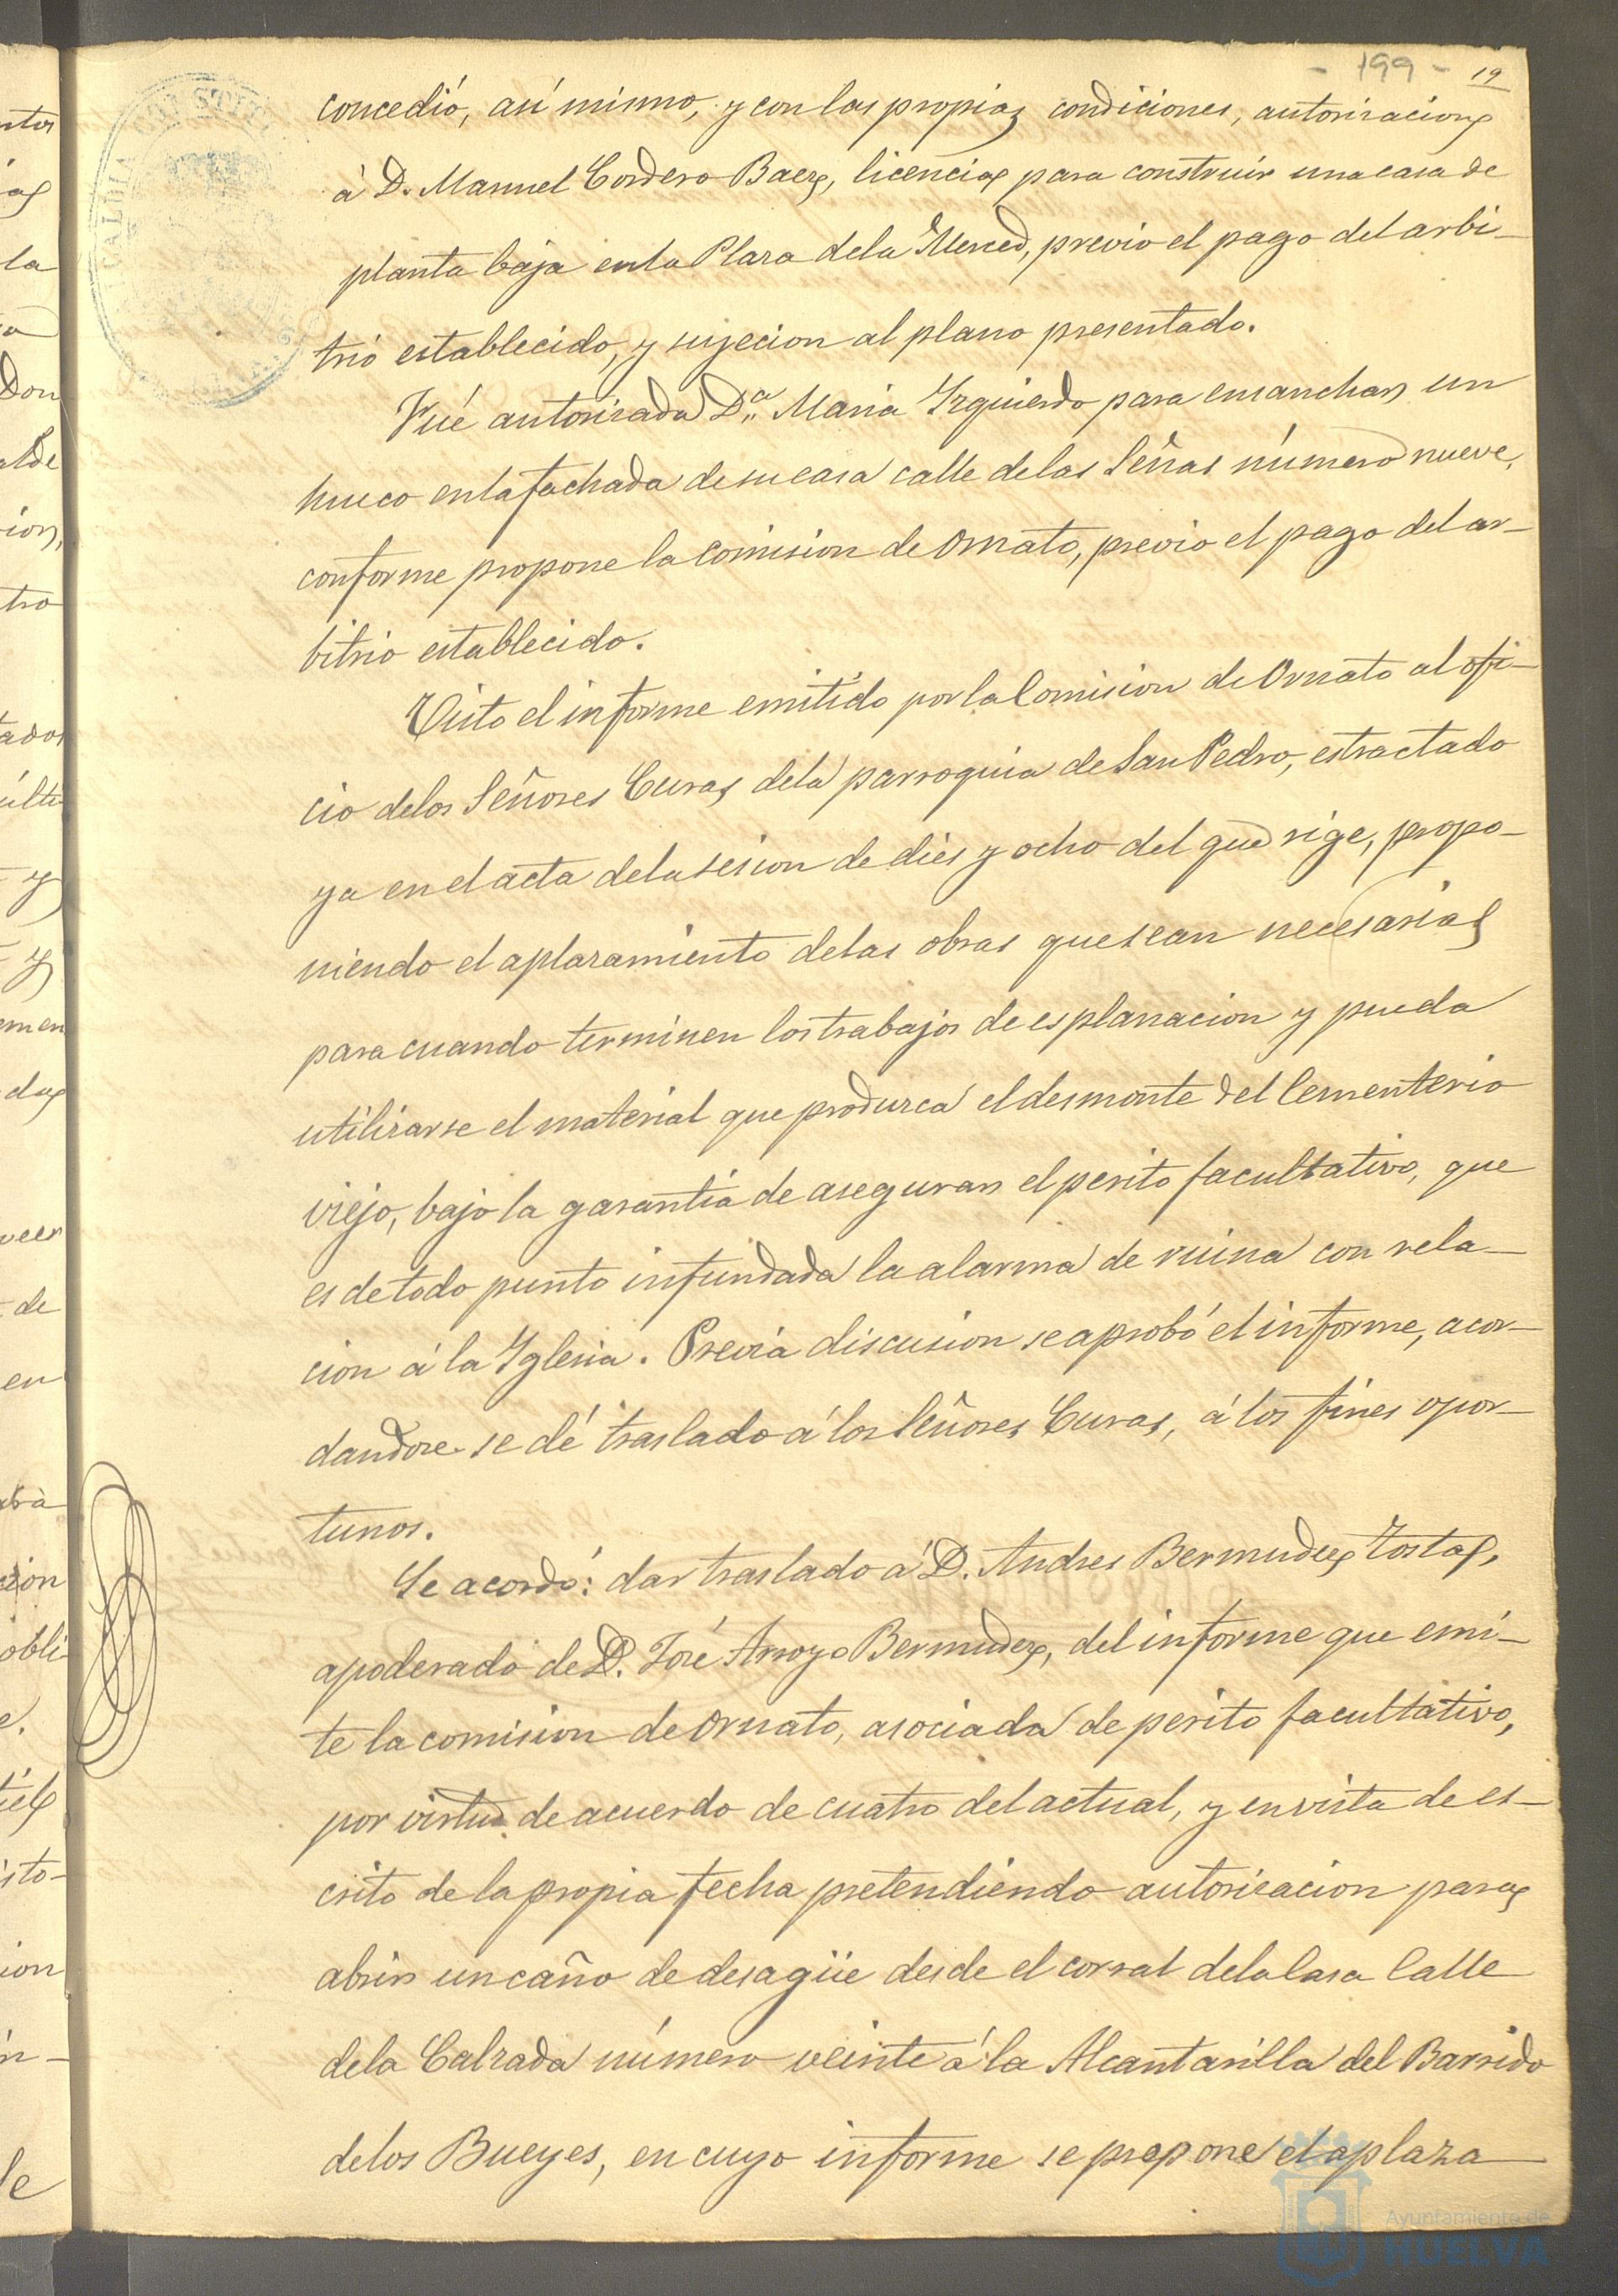 - 199 - 19
concedió, así mismo, y con las propias condiciones, autorizacion
à D. Manuel Cordero Baez, licencia para construir una casa de
planta baja en la Plaza de la Merced, previo el pago del arbi-
trio establecido, y sujecion al plano presentado.
Fué autorizada D.ª Maria Yzquierdo para ensanchar un
hueco en la fachada de su casa calle de las Señas número nueve,
conforme propone la Comision de Ornato, previo el pago del ar-
bitrio establecido.
Visto el informe emitido por la Comision de Ornato al ofi-
cio de los Señores Curas de la parroquia de San Pedro, estractado
ya en el acta de la sesion de dies y ocho del que rige, propo-
niendo el aplazamiento de las obras que sean necesarias
para cuando terminen los trabajos de esplanacion y pueda
utilizarse el material que produzca el desmonte del Cementerio
viejo, bajo la garantía de asegurar el perito facultativo, que
es de todo punto infundada la alarma de ruina con rela-
cion á la Yglesia. Previa discusion se aprobó el informe, acor-
dandose se dé traslado á los Señores Curas, á los fines opor-
tunos.
Se acordó: dar traslado á D. Andres Bermudez Tosta,
apoderado de D. José Arroyo Bermudez, del informe que emi-
te la comision de Ornato, asociada de perito facultativo,
por virtud de acuerdo de cuatro del actual, y en vista de es-
crito de la propia fecha pretendiendo autorizacion para
abrir un caño de desagüe desde el corral de la Casa Calle
de la Calzada número veinte á la Alcantarilla del Barrido
de los Bueyes, en cuyo informe se propone el aplaza
Ayuntamiento de
HUELVA